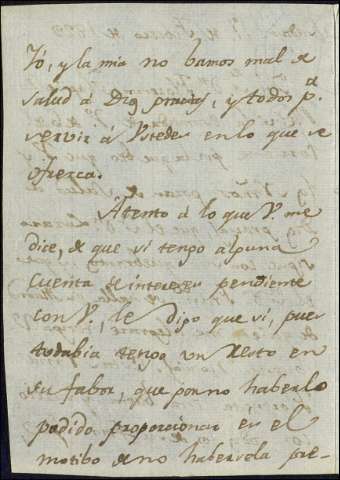 Yó, y la mia no bamos mal de
salud á Dios gracias, y todos pa.
servir á Vstedes en lo que se
ofrezca.
Atento á lo que V. me
dice, de que si tengo alguna
cuenta de intereses pendiente
con V, le digo que si, pues
todabia tengo un Resto en
su fabor, que por no haberlo
podido proporcionar en el
motibo de no habersela pre-